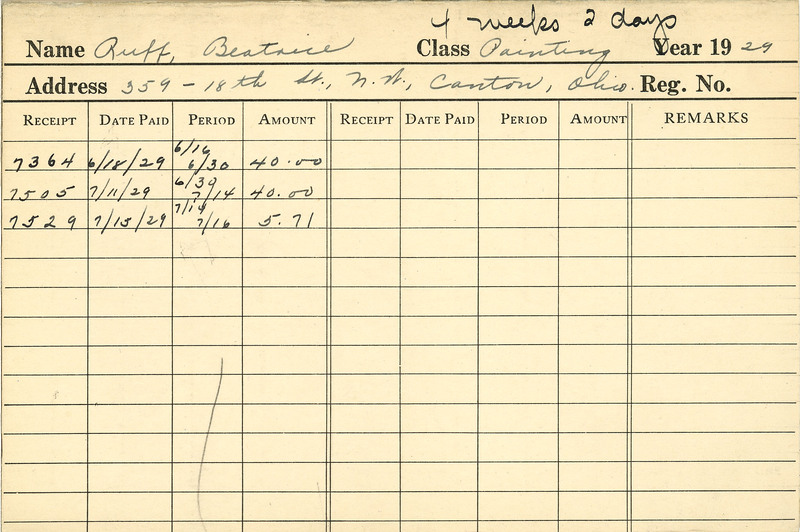 4 weeks 2 days
Name Ruff, Beatrice Class Painting Year 19 29
Address 359 - 18th St., N.W., Canton, Ohio. Reg. No.
RECEIPT DATE PAID PERIOD AMOUNT RECEIPT DATE PAID PERIOD AMOUNT REMARKS
6/16
7364 6/18/29 6/30 40.00
6/30
7505 7/11/29 7/14 40.00
7/14
7529 7/15/29 7/16 5.71